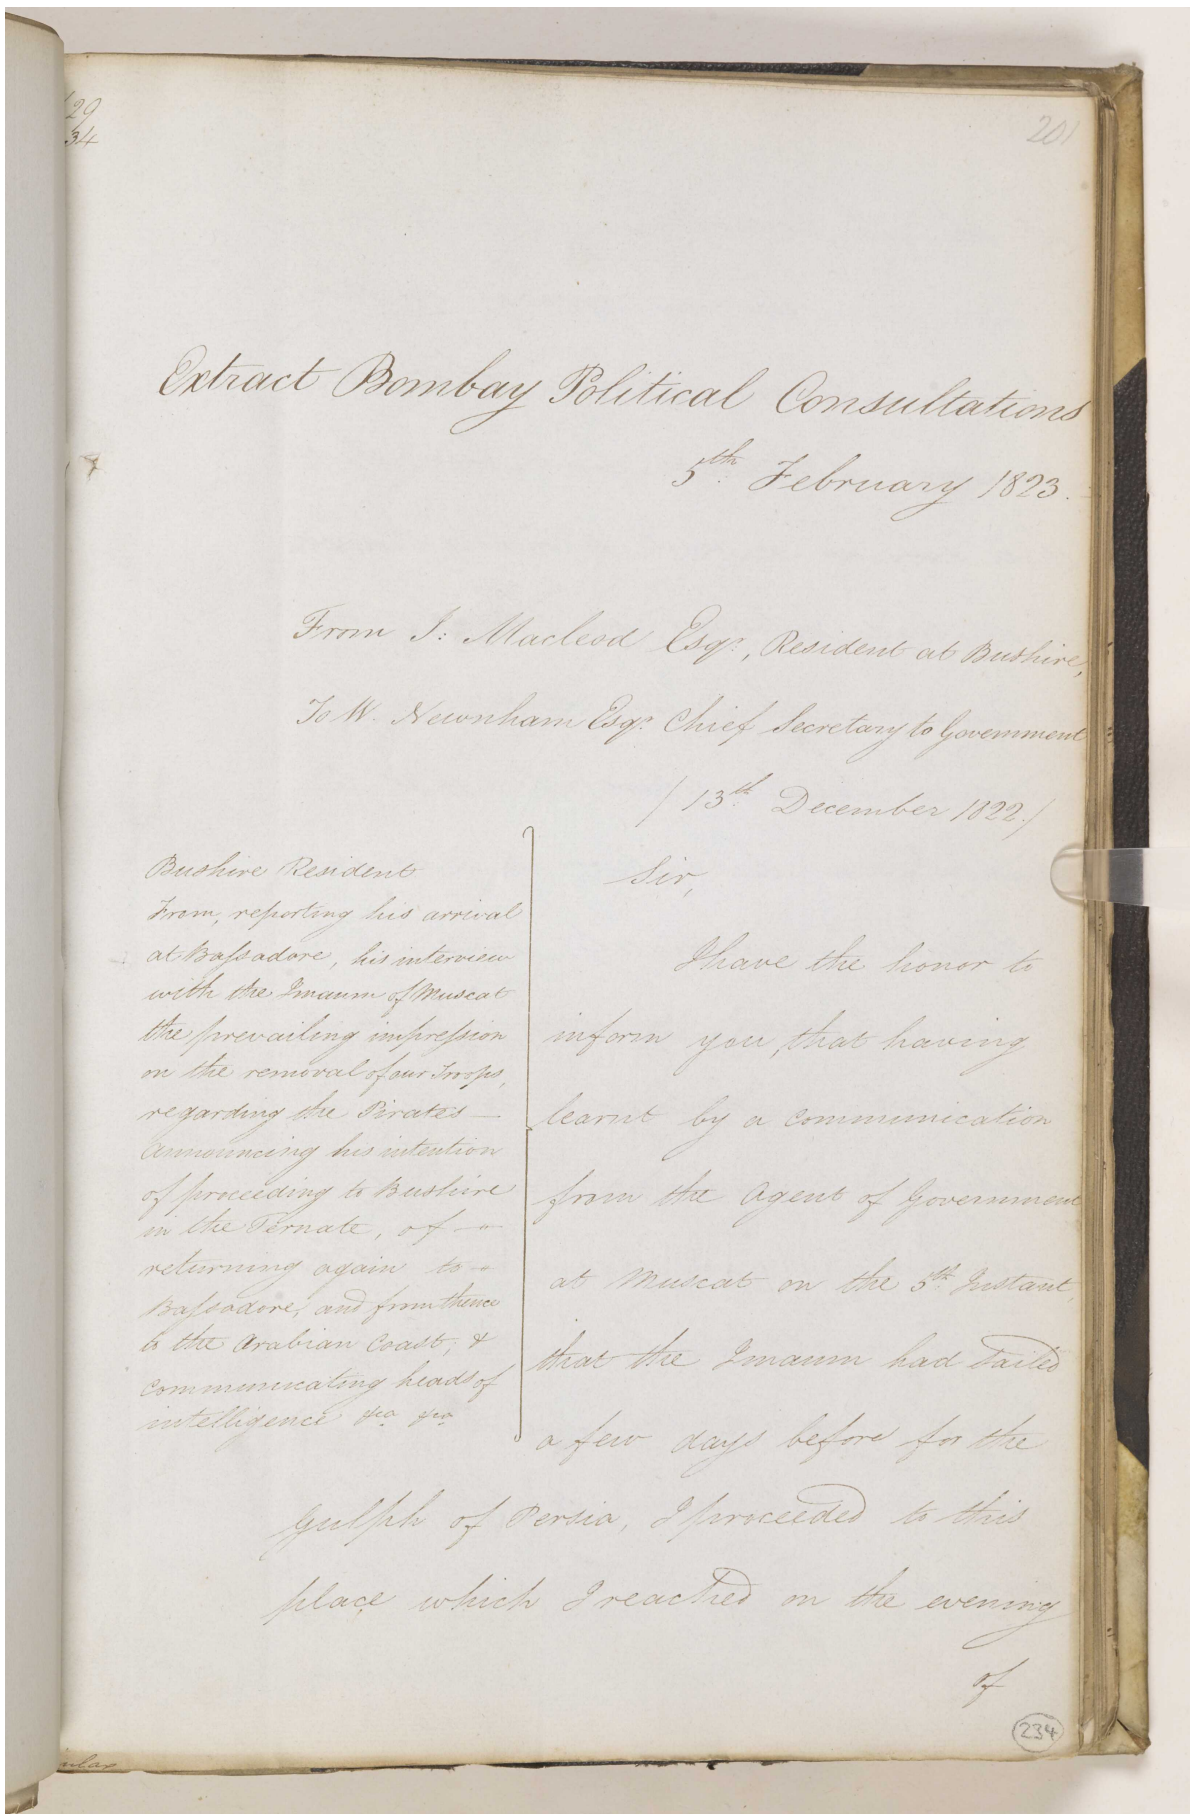 29
34
201
Extract Bombay Political Consultations
5th February 1823.
From J: Macleod Esqr., Resident at Bushire,
To W. Newnham Esqr. Chief Secretary to Government
/ 13th December 1822./
Bushire Resident
From, reporting his arrival
at Bassadore, his interview
with the Imaum of Muscat
the prevailing impression
on the removal of our Troops,
regarding the Pirates —
Announcing his intention
of proceeding to Bushire
in the Ternate, of -"
returning again to -"
Bassadore, and from thence
to the Arabian Coast, &
communicating heads of
intelligence &ca &ca
Sir,
I have the honor to
inform you, that having
learnt by a communication
from the Agent of Government
at Muscat on the 5th Instant,
that the Imaum had sailed
a few days before for the
Gulph of Persia, I proceeded to this
place which I reached on the evening
of
234